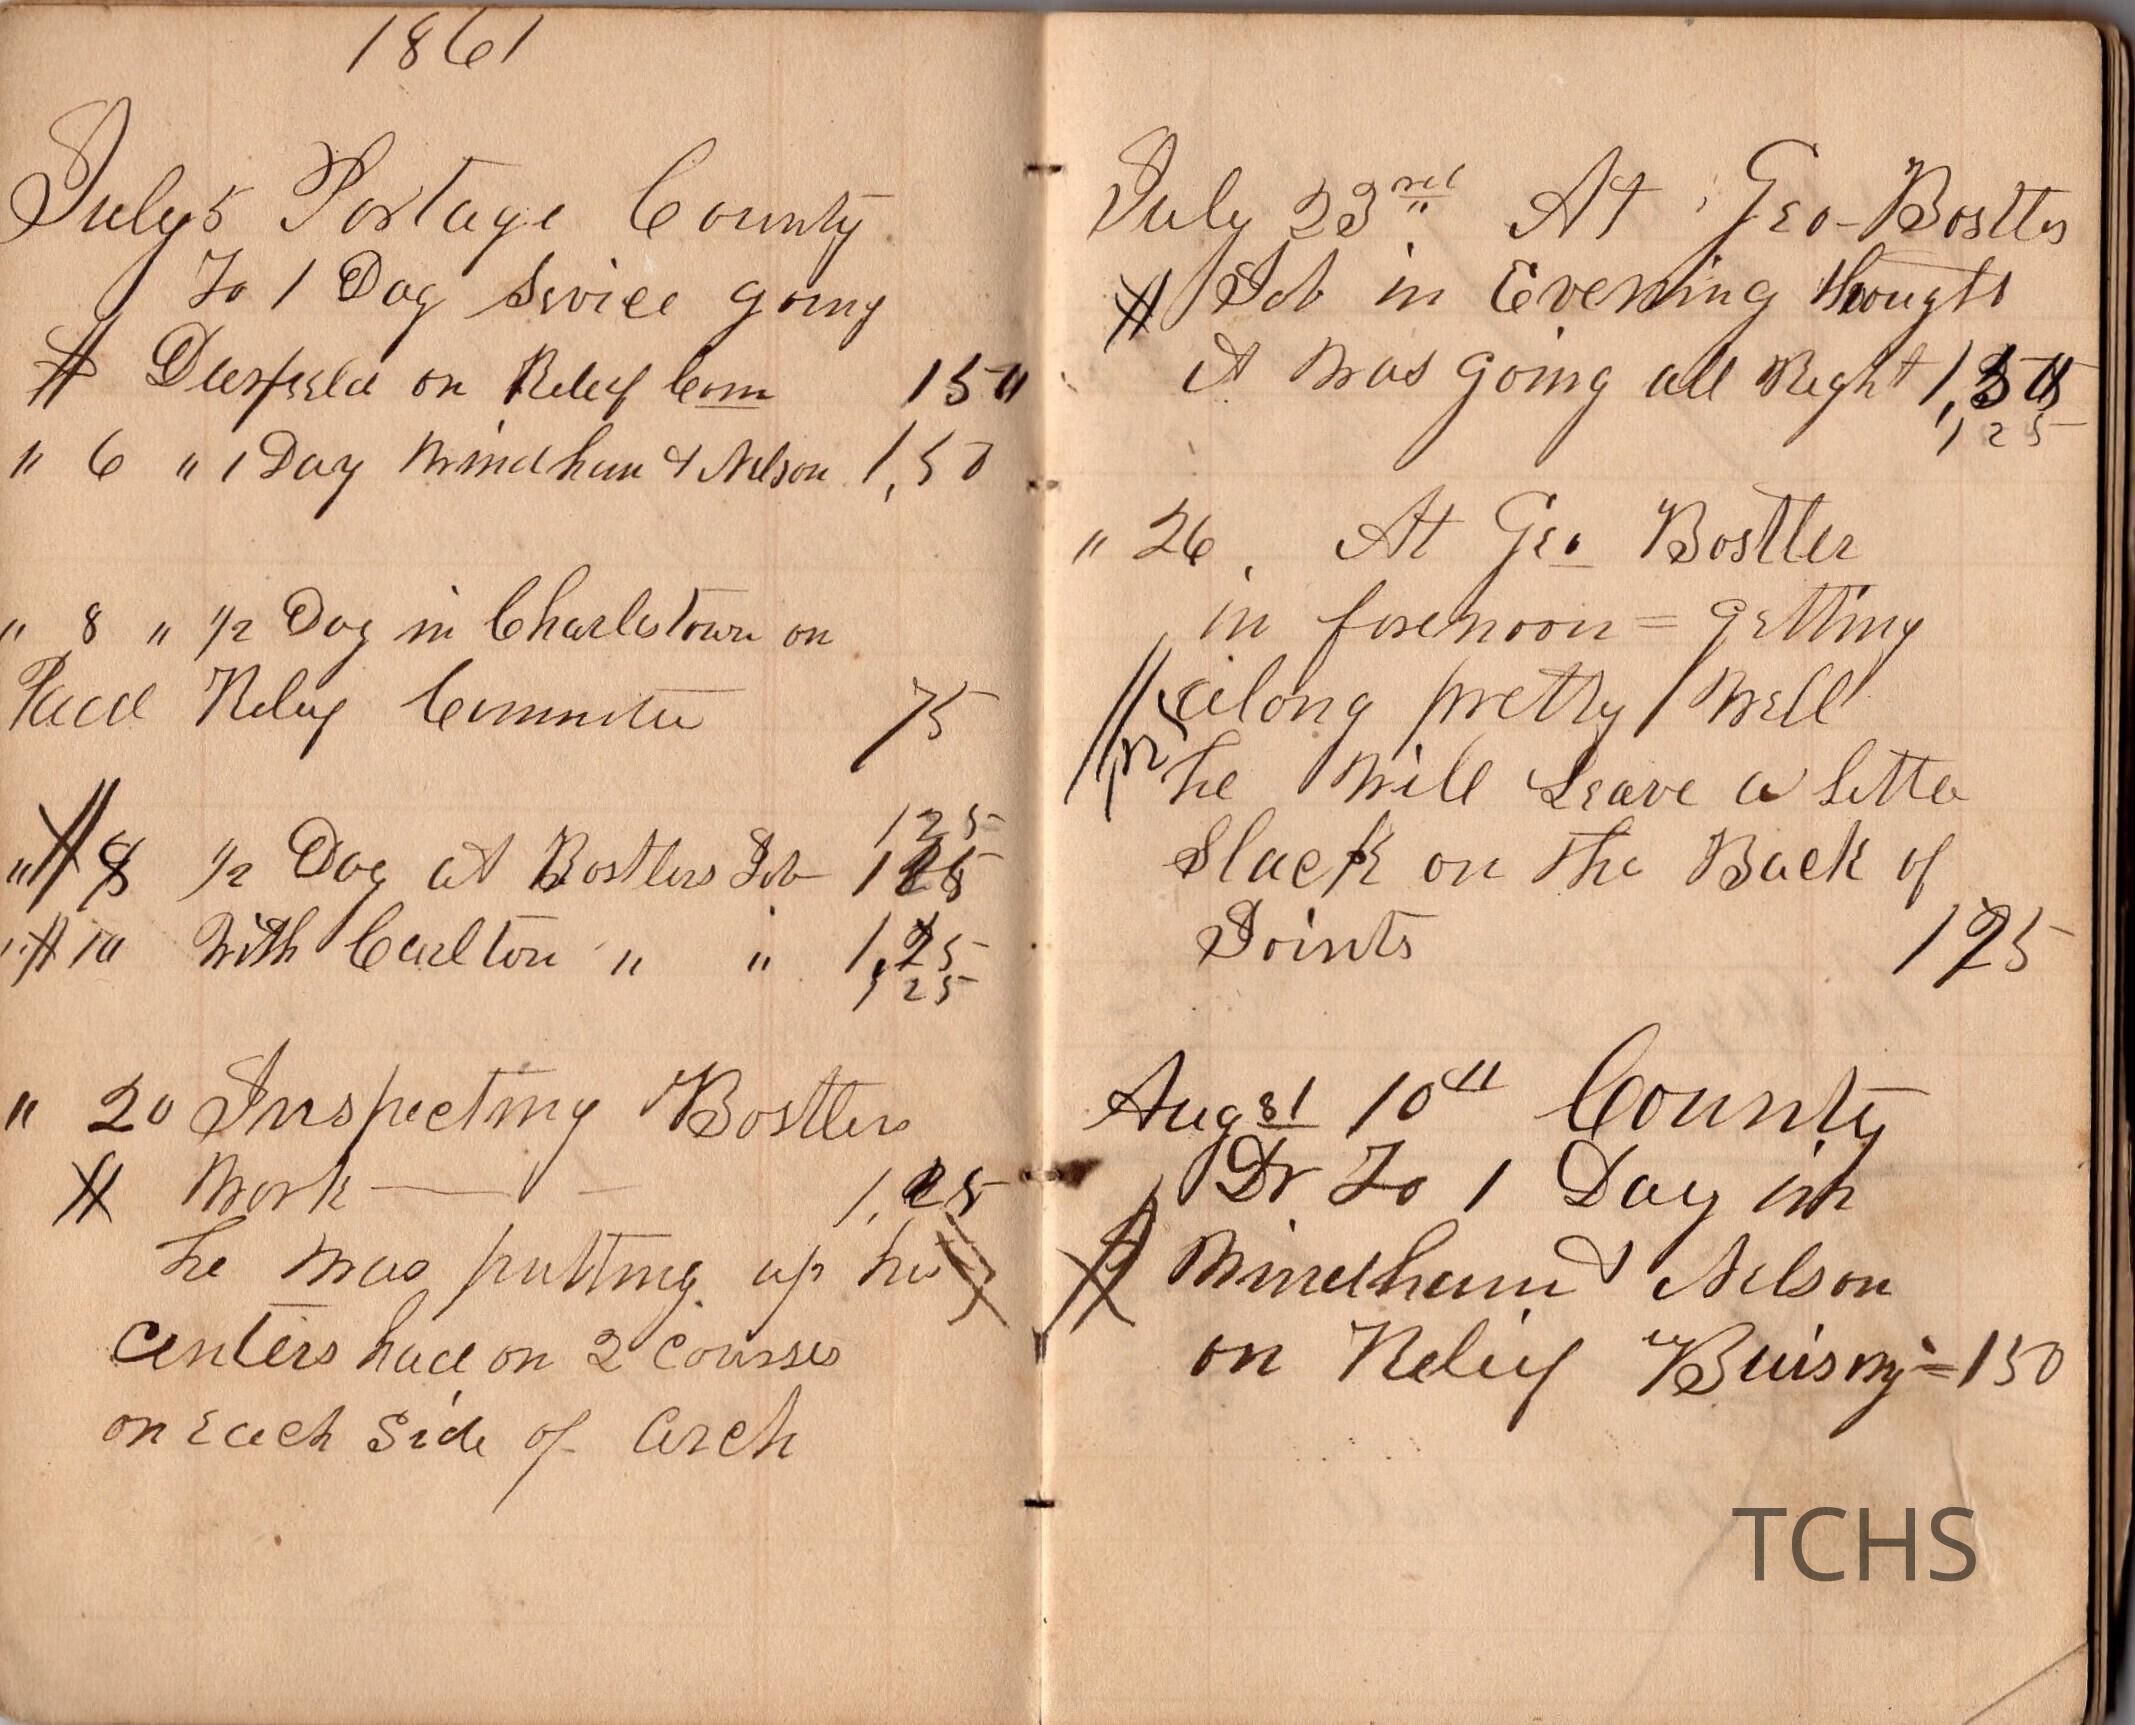 1861
July 5 Portage County
To 1 Day Service going
Deerfield on Relief Com 150
" 6 " 1 Day Windham & Nelson 1,50
" 8 " 1/2 Day in Charlestown on
Paid Relief Committee 75
125
" 8 1/2 Day at Bostlers Job 1
" 10 With Carlton " " 1,25
1,25
" 20 Inspecting Bostlers
Work — 1,25
he was putting up his
centers had on 2 courses
on Each Side of Arch
July 23rd At Geo - Bostlers
Job in Evening thought
it was going all Right 1,
1,25
" 26, At Geo Bostler
in forenoon = getting
along pretty Well
he Will Leave a little
Slack on the Back of
Joints 125
Augst 10th County
Dr To 1 Day in
Windham & Nelson
on Relief = 150
TCHS